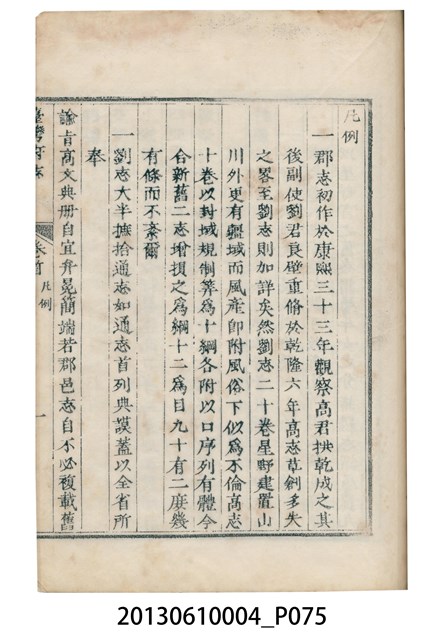 凡例
一郡志初作於康熙三十三年觀察高君拱乾成之其
後副使劉君良璧重脩於乾隆六年高志草創多失
之畧至劉志則加詳矣然劉志二十卷星野建置山
川外更有疆域而風產即附風俗下似為不倫高志
十卷以封域規制等為十綱各附以口序列有體今
合新舊二志增損之為綱十二為目九十有二庶幾
有條而不紊爾
一劉志大半摭拾通志如通志首列典謨蓋以全省所
奉
諭旨高文典冊自宜弁冕簡端若郡邑志自不必複載舊
臺灣府志
卷首
凡例
一
20130610004_P075